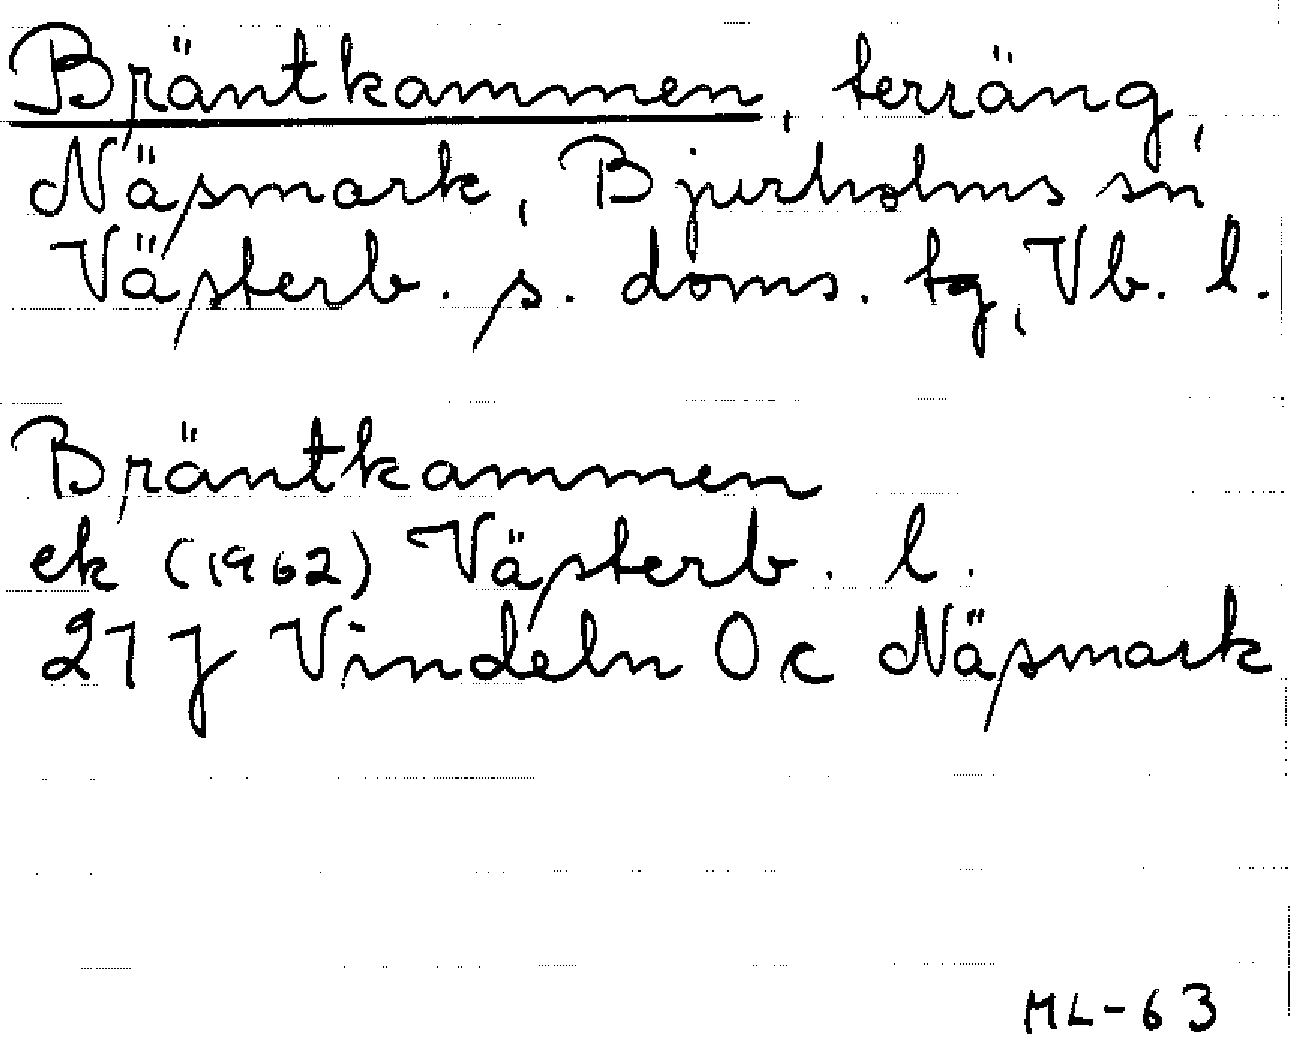 Bräntkammen, terräng,
Näsmark, Bjurholms sn
Västerb. s. doms. tg, Vb. l.
Bräntkammen
ek (1962) Västerb. l.
21 J Vindeln 0c Näsmark
ML-63